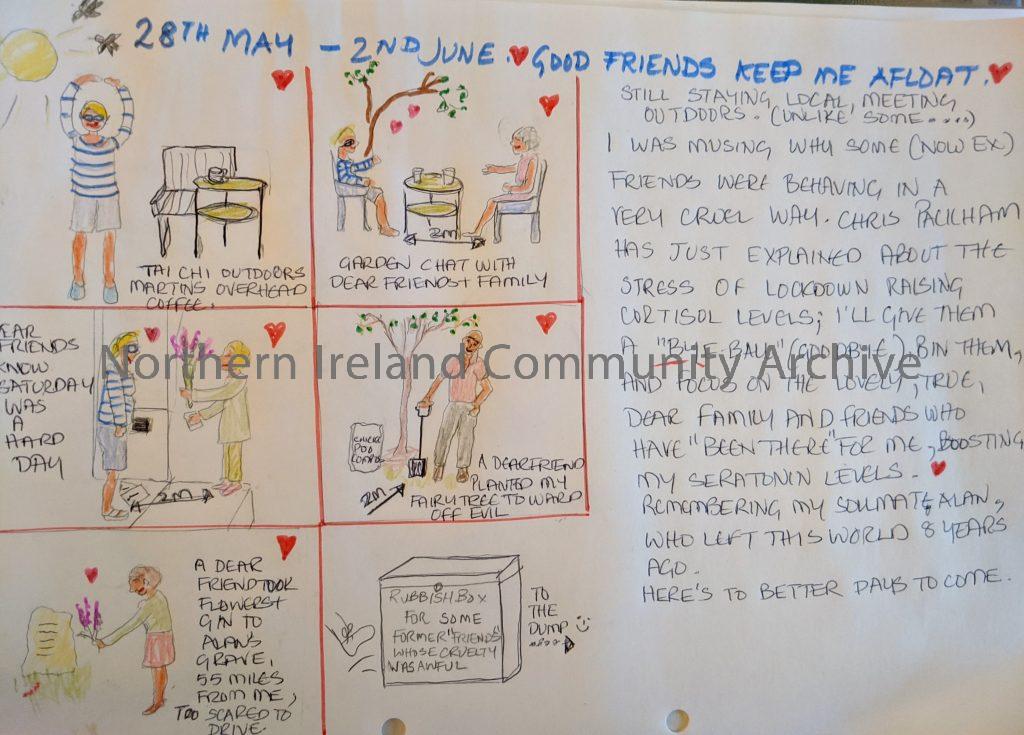 28TH MAY – 2ND JUNE. GOOD FRIENDS KEEP ME AFLOAT.
TAI CHI OUTDOORS
MARTINS OVERHEAD
COFFEE.
2M
GARDEN CHAT WITH
DEAR FRIENDS + FAMILY
EAR
FRIENDS
KNOW
SATURDAY
WAS
A
HARD
DAY
2M
CHICKEN
POO
COMPOST
2M
A DEAR FRIEND
PLANTED MY
FAIRY TREE TO WARD
OFF EVIL
A DEAR
FRIEND TOOK
FLOWERS +
GIN TO
ALAN'S
GRAVE,
55 MILES
FROM ME,
TOO SCARED TO
DRIVE.
RUBBISH BOX
FOR SOME
FORMER "FRIENDS"
WHOSE CRUELTY
WAS AWFUL
TO
THE
DUMP
STILL STAYING LOCAL, MEETING
OUTDOORS. (UNLIKE SOME....)
I WAS MUSING WHY SOME (NOW EX)
FRIENDS WERE BEHAVING IN A
VERY CRUEL WAY. CHRIS PACKHAM
HAS JUST EXPLAINED ABOUT THE
STRESS OF LOCKDOWN RAISING
CORTISOL LEVELS; I'LL GIVE THEM
A "BYE-BALL" (GOODBYE), BIN THEM,
AND FOCUS ON THE LOVELY, TRUE,
DEAR FAMILY AND FRIENDS WHO
HAVE "BEEN THERE" FOR ME, BOOSTING
MY SERATONIN LEVELS.
REMEMBERING MY SOULMATE, ALAN,
WHO LEFT THIS WORLD 8 YEARS
AGO.
HERE'S TO BETTER DAYS TO COME.
Northern Ireland Community Archive